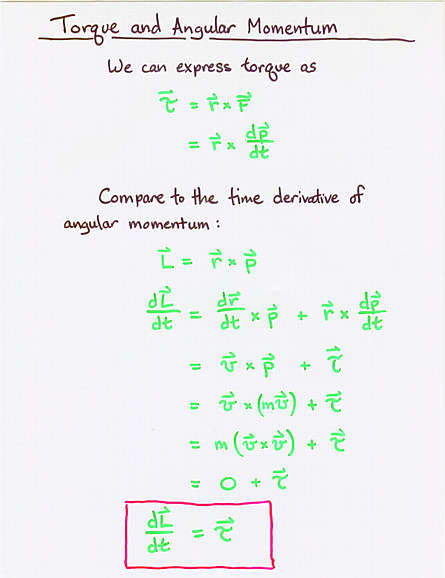 Torque and Angular Momentum
We can express torque as
τ⃗ = r⃗ × F⃗
= r⃗ × dp⃗/dt
Compare to the time derivative of
angular momentum:
L⃗ = r⃗ × p⃗
dL⃗/dt = dr⃗/dt × p⃗ + r⃗ × dp⃗/dt
= v⃗ × p⃗ + τ⃗
= v⃗ × (mv⃗) + τ⃗
= m(v⃗ × v⃗) + τ⃗
= 0 + τ⃗
dL⃗/dt = τ⃗